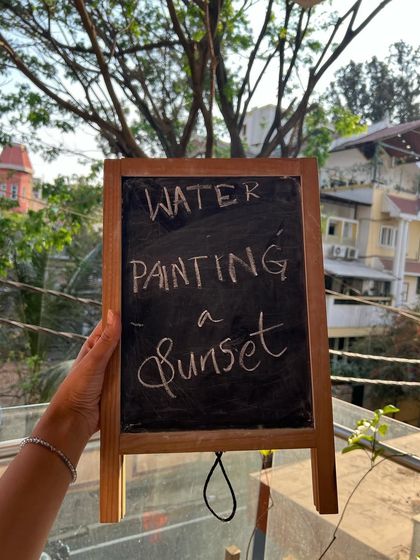 WATER
PAINTING
a
Sunset